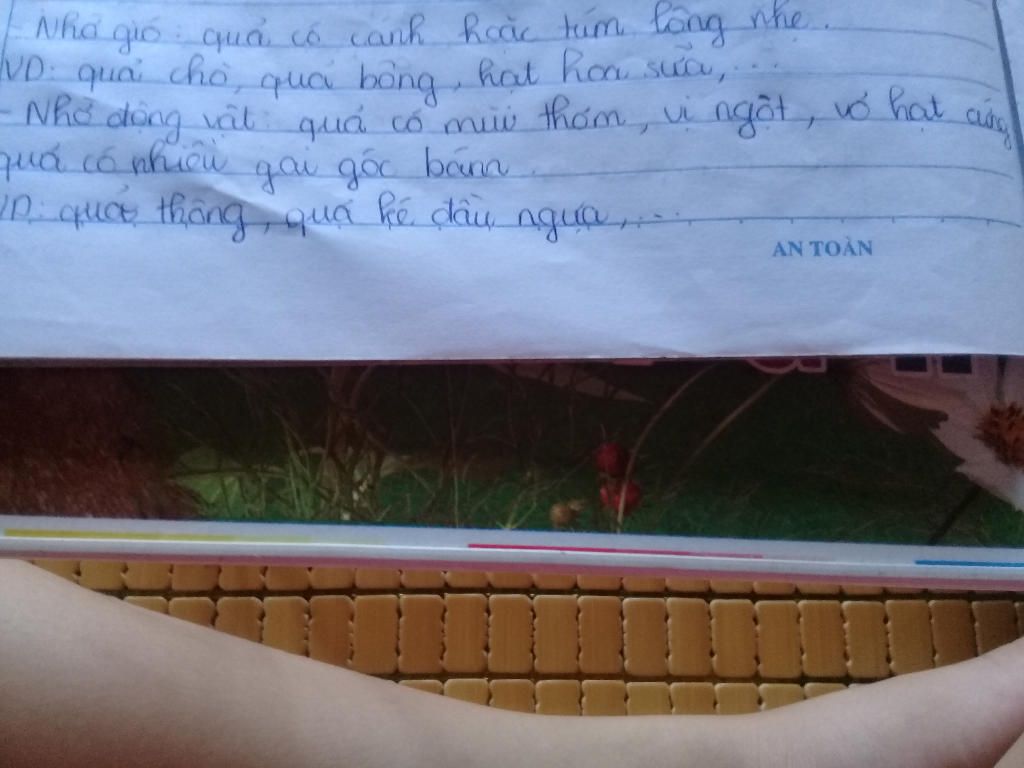 - Nhờ gió: quả có cánh hoặc túm lông nhẹ.
VD: quả chò, quả bông, hạt hoa sữa,...
- Nhờ động vật: quả có mùi thơm, vị ngọt, vỏ hạt cứng,
quả có nhiều gai góc bám.
VD: quả thông, quả ké đầu ngựa,...
AN TOÀN